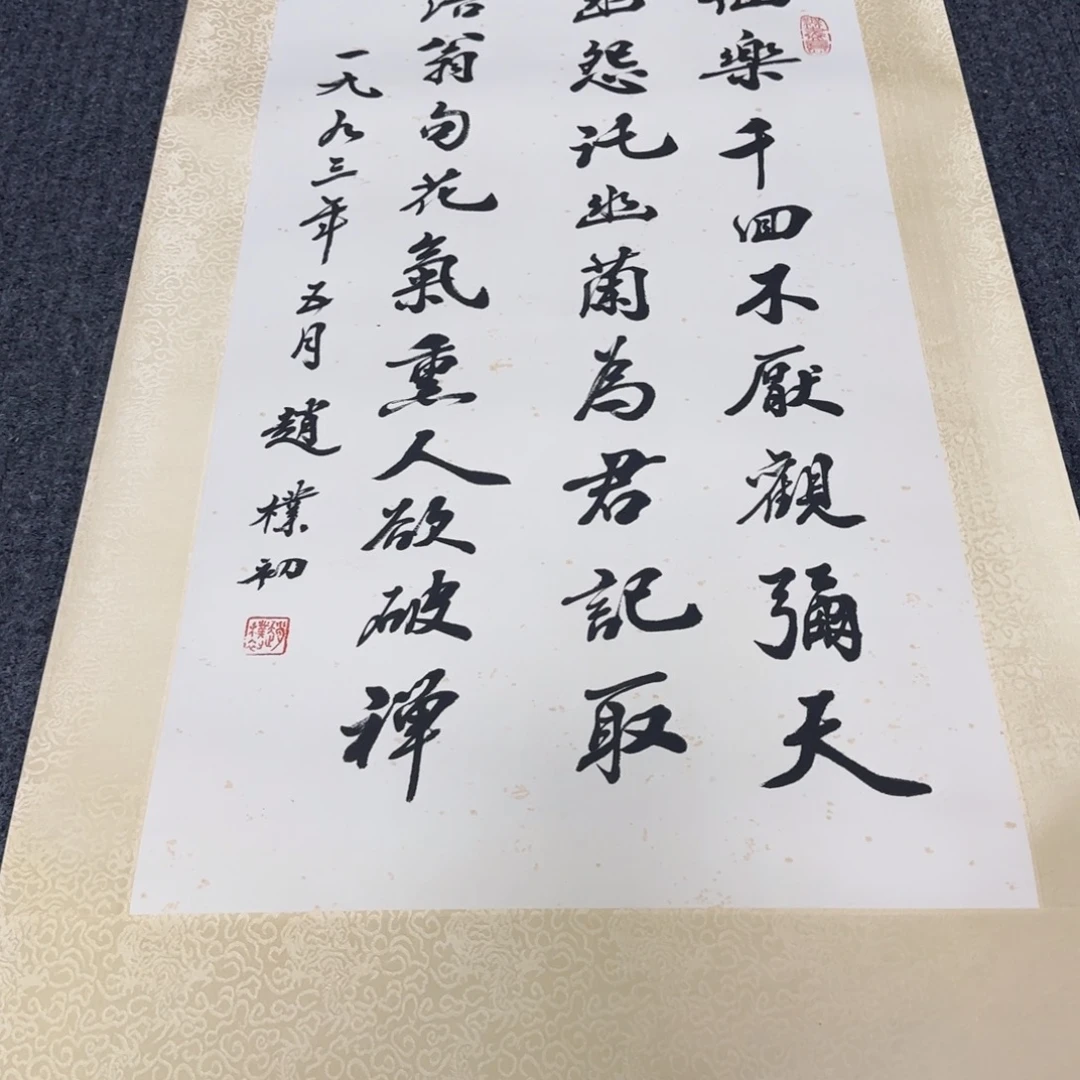 樂千回不厭觀彌天
怨託幽蘭為君記取
翁句花氣熏人欲破禪
一九九三年五月趙樸初